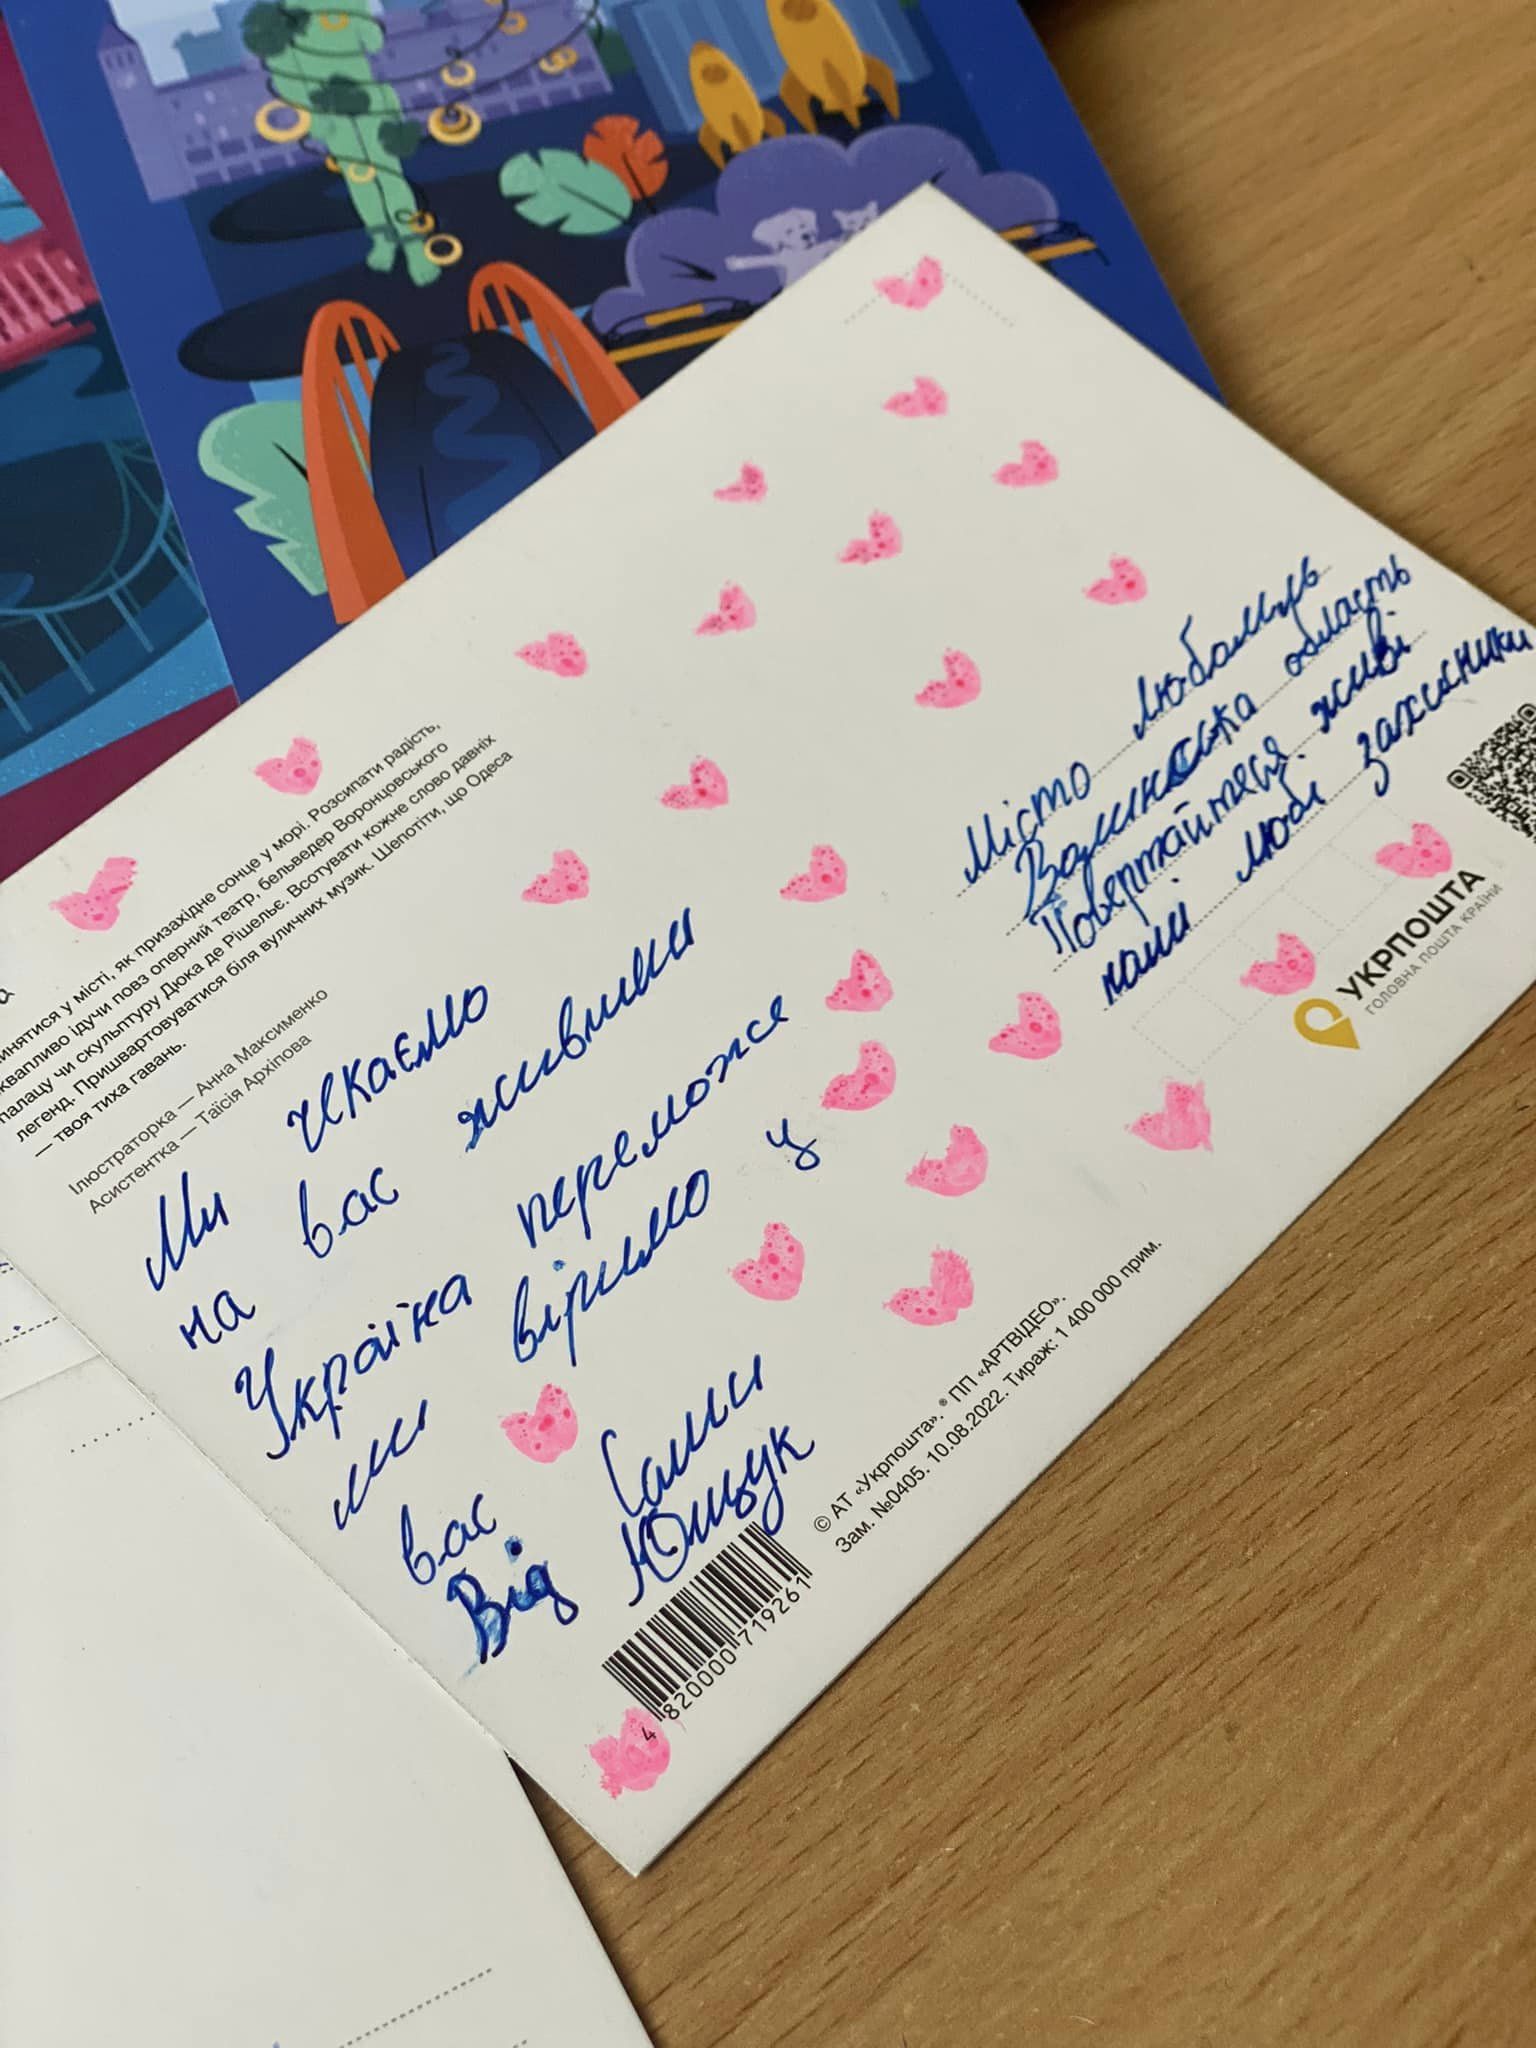 инятися у місті, як призахідне сонце у морі. Розсипати радість,
квапливо ідучи повз оперний театр, бельведер Воронцовського
палацу чи скульптуру Дюка де Рішельє. Всотувати кожне слово давніх
легенд. Пришвартовуватися біля вуличних музик. Шепотіти, що Одеса
— твоя тиха гавань.
Ілюстраторка — Анна Максименко
Асистентка — Таїсія Архіпова
Ми чекаємо
на вас живими
Україна переможе
ми віримо у
вас
Від Юищук
Місто Любомль
Волинська область
Повертайтеся живі
наші любі захисники
УКРПОШТА
ГОЛОВНА ПОШТА КРАЇНИ
© АТ «Укрпошта». ® ПП «АРТВІДЕО».
Зам. №0405. 10.08.2022. Тираж: 1 400 000 прим.
4 820000 719261